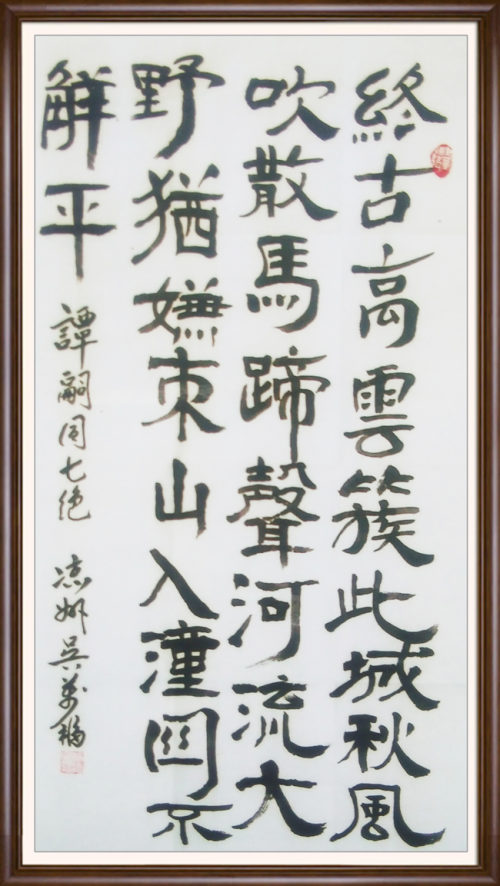 終古高雲簇此城秋風
吹散馬蹄聲河流大
野猶嫌束山入潼関不
觧平
譚嗣同七绝
凉州吴